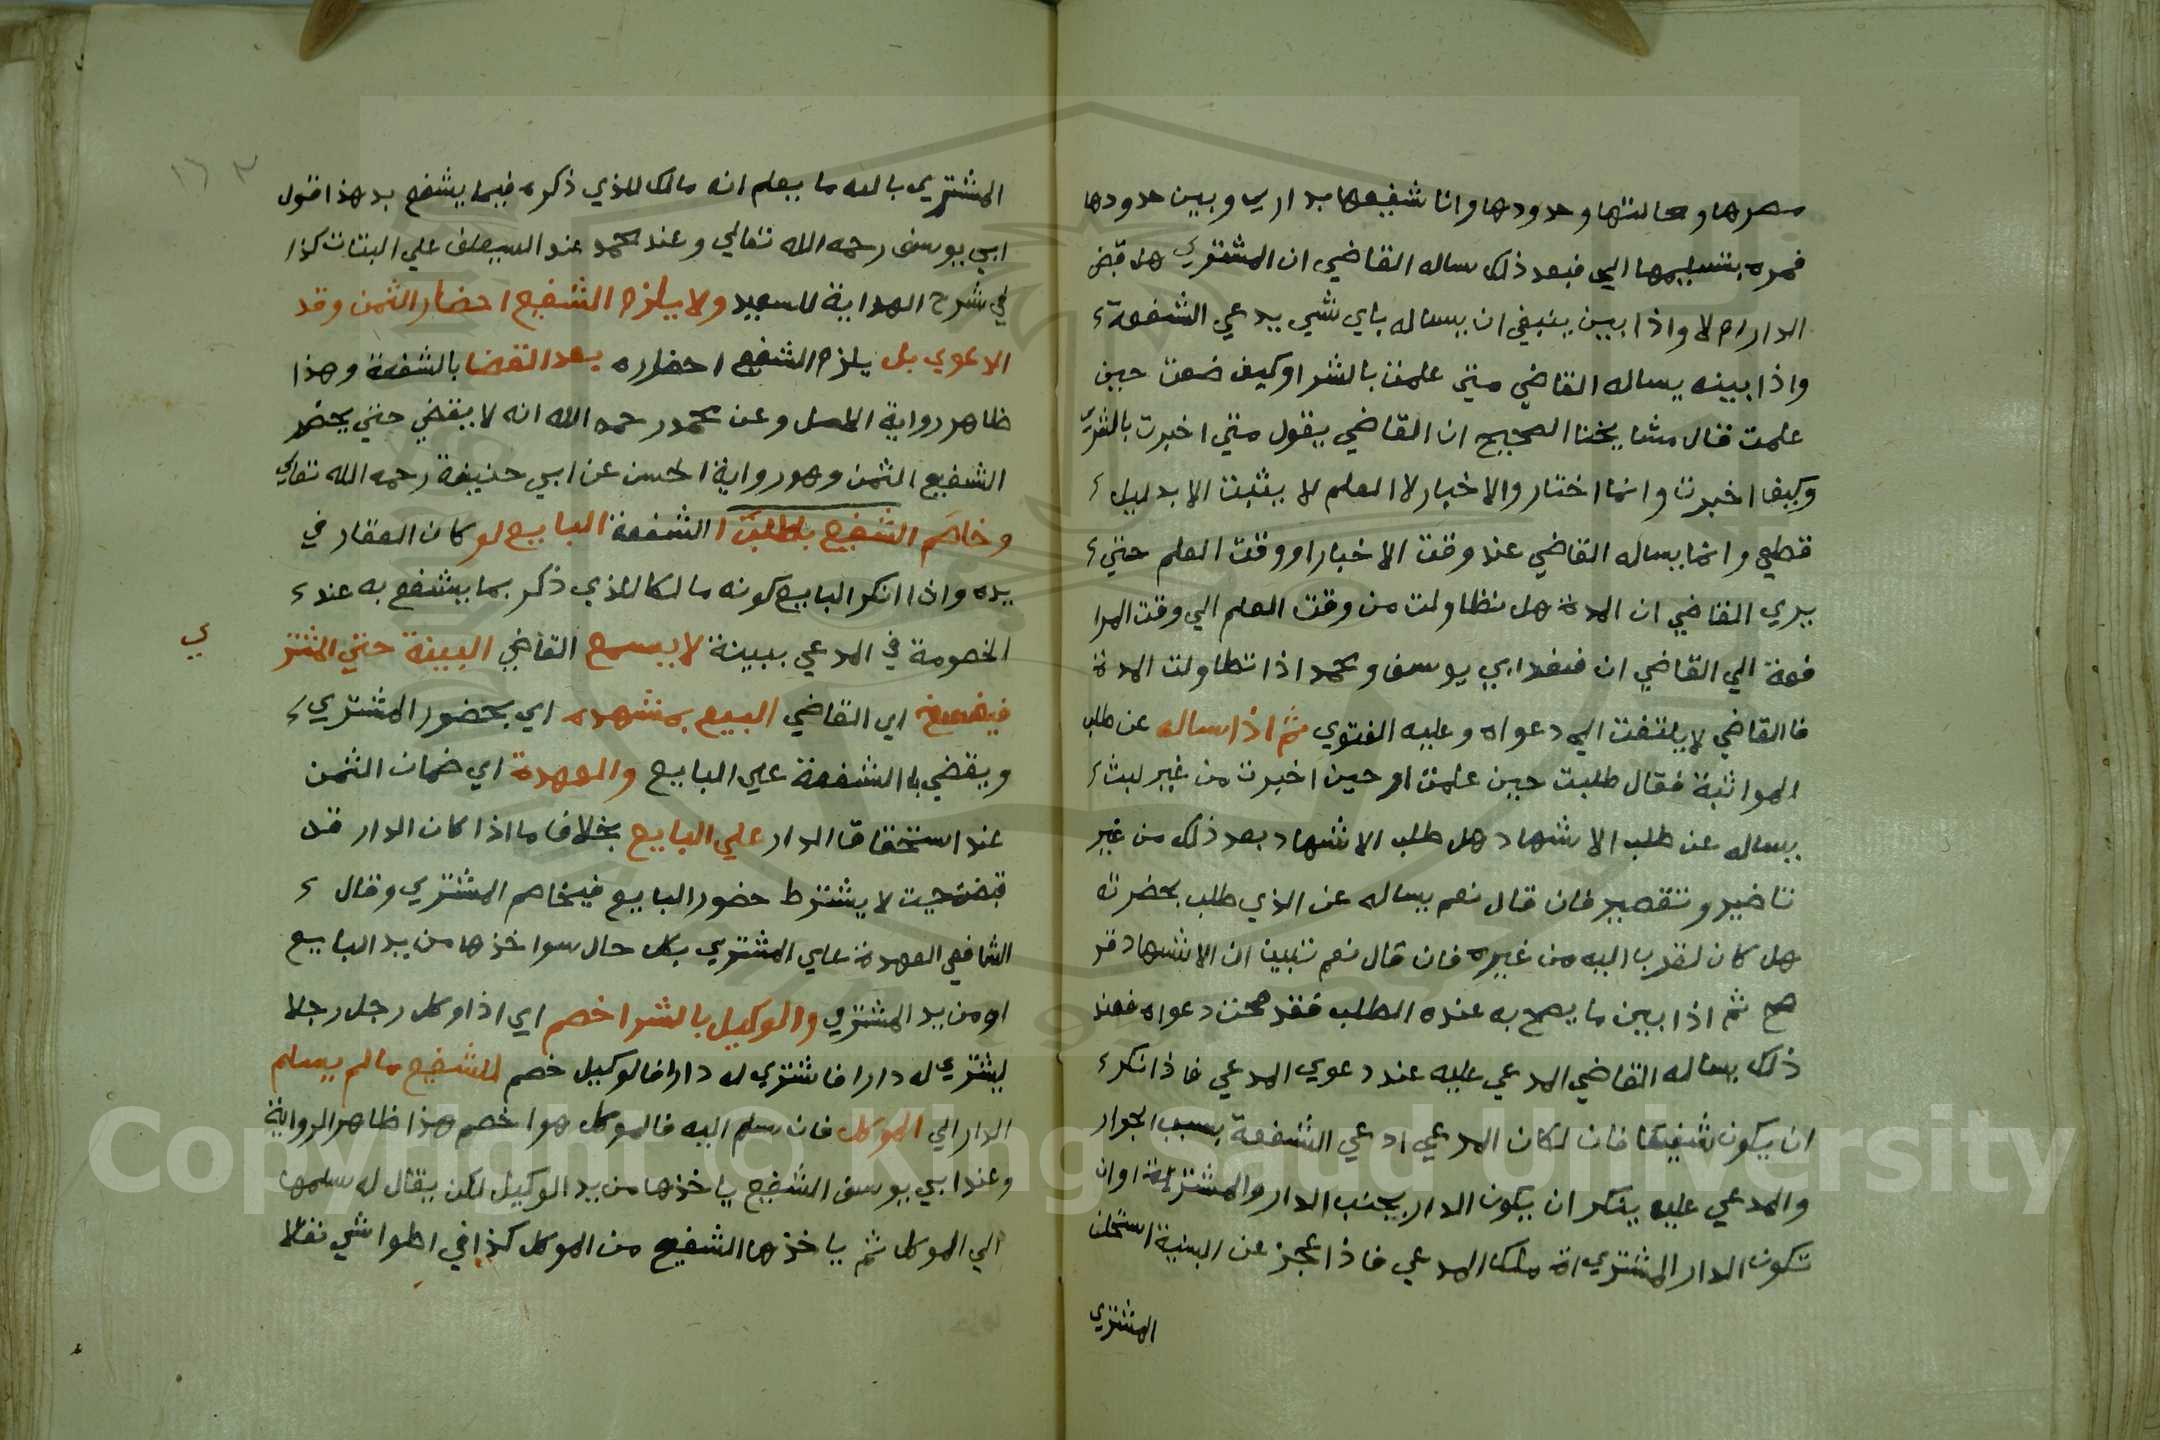 مصرها ومحالتها وحدودها وانا شفيعها بداري وبين حدودها
فمره بتسليمها الي فبعد ذلك ساله القاضي ان المشتري هل قبض
الدار ام لا واذا بين ينبغي ان يساله باي شي يدعي الشفعة
واذا بينه يساله القاضي متي علمت بالشرا وكيف صنعت حين
علمت قال مشايخنا الصحيح ان القاضي يقول متي اخبرت بالشرا
وكيف اخبرت وانما اختار والاخبار لا العلم لا يثبت الا بدليل
قطعي وانما يساله القاضي عند وقت الاخبار او وقت العلم حتي
يدري القاضي ان المدة هل تطاولت من وقت العلم الي وقت المرا
فعة الي القاضي ان فعند ابي يوسف ومحمد اذا تطاولت المدة
فالقاضي لا يلتفت الي دعواه وعليه الفتوي ثم اذا ساله عن طلب
المواثبة فقال طلبت حين علمت او حين اخبرت من غير لبث
يساله عن طلب الاشهاد هل طلب الاشهاد بعد ذلك من غير
تاخير وتقصير فان قال نعم يساله عن الذي طلب بحضرته
هل كان لقرب اليه من غيره فان قال نعم تبين ان الاشهاد قد
صح ثم اذا بين ما يصح به عنده الطلب فقد صحت دعواه فعند
ذلك يساله القاضي المدعي عليه عند دعوي المدعي فاذا نكر
ان يكون شفيعا فان لكان المدعي ادعي الشفعة بسبب الجوار
والمدعي عليه ينكر ان يكون الدار بجنب الدار والمشتراة او ان
تكون الدار المشتري اة ملك المدعي فاذا عجز عن البينة استحلف
المشتري
١٦٣
المشتري بالله ما يعلم انه مالك للذي ذكره فيما يشفع به هذا قول
ابي يوسف رحمه الله تعالي وعند محمد عند السيحلف علي البتات كذا
في شرح الهداية للسعيد ولا يلزم الشفيع احضار الثمن وقد
الادعوي بل يلزم الشفيع احضاره بعد القضا بالشفعة وهذا
ظاهر رواية الاصل وعن محمد رحمه الله انه لا يقضي حتي يحضر
الشفيع الثمن وهو رواية الحسن عن ابي حنيفة رحمه الله تعالي
وخاصم الشفيع بطلب الشفعة البايع لو كان العقار في
يده واذا انكر البايع كونه مالكا للذي ذكر بما يشفع به عند
الخصومة في المدعي ببينة لا يسمع القاضي البينة حتي المشتر
ي
فيفسخ اي القاضي البيع بمشهده اي بحضور المشتري
ويقضي با الشفعة علي البايع والعهدة اي ضمان الثمن
عند استحقاق الدار علي البايع بخلاف ما اذا كان الدار قد
قبضت حيث لا يشترط حضور البايع فيخاصم المشتري وقال
الشافعي العهدة علي المشتري بكل حال سوا خذها من يد البايع
او من يد المشتري والوكيل بالشرا خصم اي اذا وكل رجل رجلا
ليشتري له دارا فاشتري له دارا فالوكيل خصم للشفيع ما لم يسلم
الدار الي الموكل فان سلم اليه فالموكل هو الخصم هذا ظاهر الرواية
وعند ابي يوسف الشفيع ياخذها من يد الوكيل لكن يقال له سلمها
الي الموكل ثم ياخذها الشفيع من الموكل كذا في الحواشي نقلا
Copyright © King Saud University